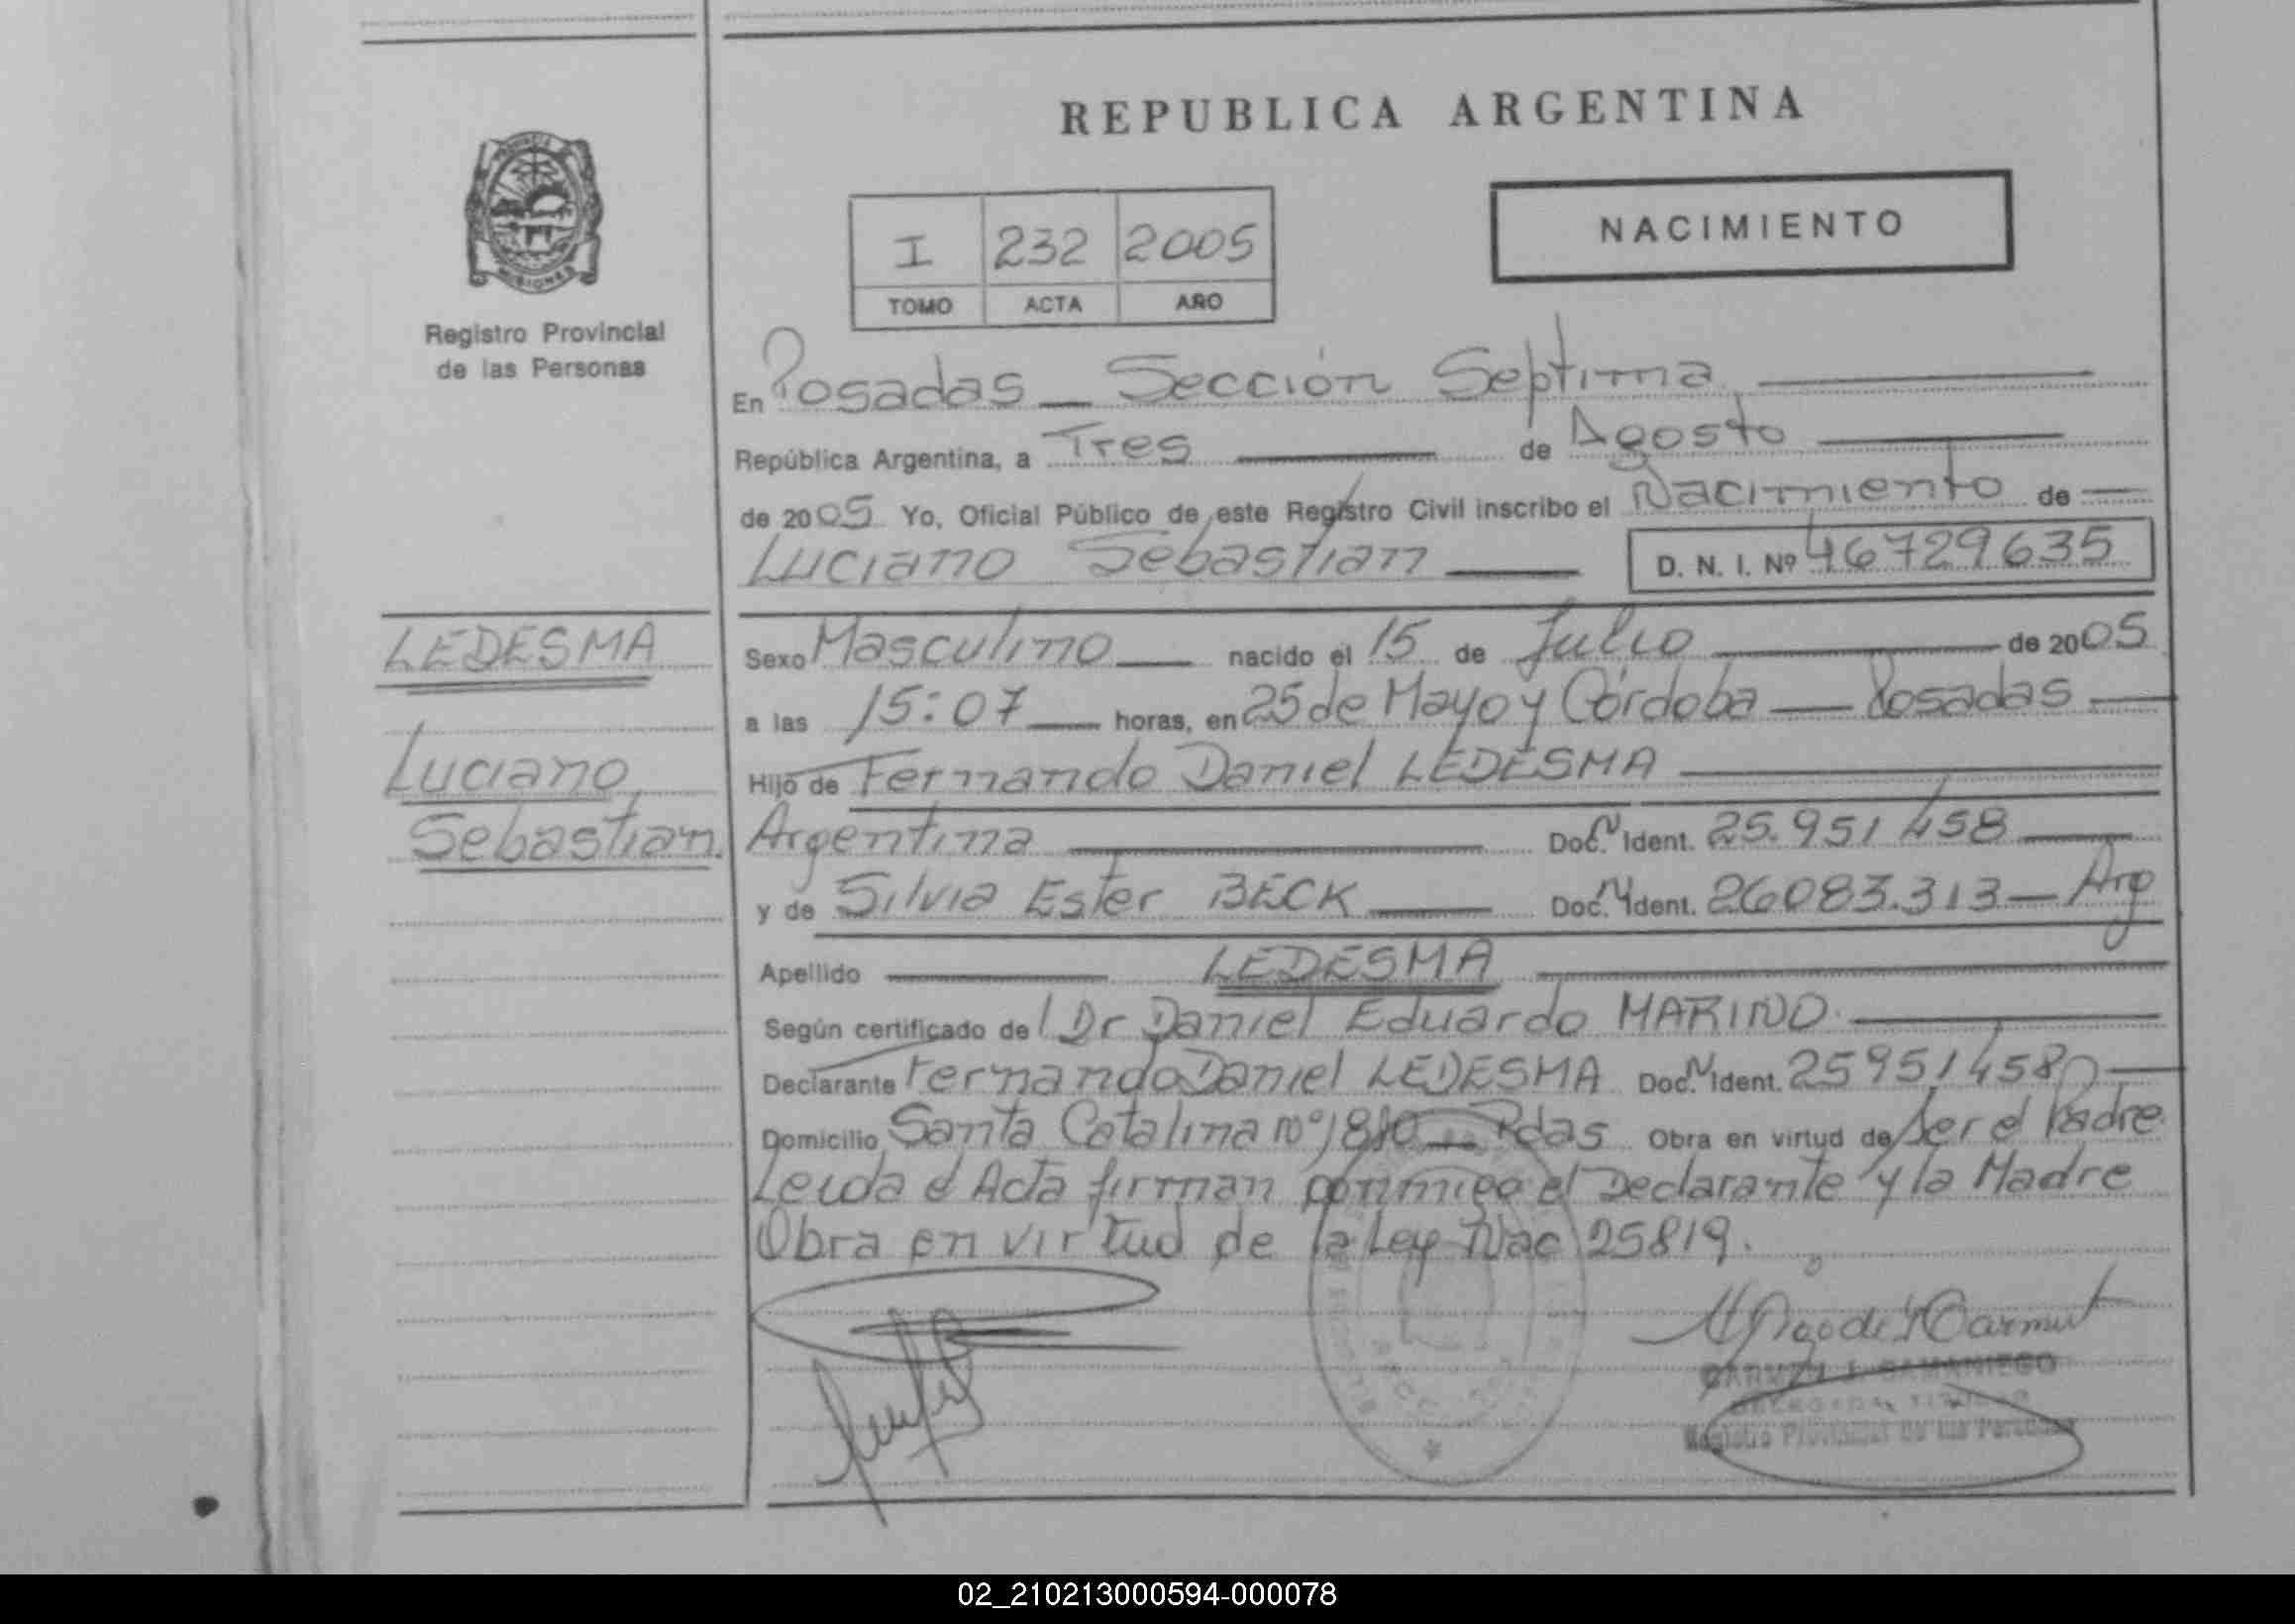 REPUBLICA ARGENTINA
NACIMIENTO
I 232 2005
TOMO ACTA AÑO
PROVINCIA DE MISIONES
Registro Provincial
de las Personas
En Posadas — Sección Septima
República Argentina, a Tres de Agosto
de 2005 Yo, Oficial Público de este Registro Civil inscribo el Nacimiento de
Luciano Sebastian D. N. I. Nº 46729635
LEDESMA
Luciano
Sebastian.
Sexo Masculino nacido el 15 de Julio de 2005
a las 15:07 horas, en 25 de Mayo y Córdoba — Posadas
Hijo de Fernando Daniel LEDESMA
Argentina Doc. N Ident. 25.951458
y de Silvia Ester BECK Doc. N Ident. 26083.313 — Arg
Apellido LEDESMA
Según certificado del Dr Daniel Eduardo MARINO
Declarante Fernando Daniel LEDESMA Doc. N Ident. 25951458
Domicilio Santa Catalina nº 1810 — Pdas Obra en virtud de Ser el Padre
Leida el Acta firman conmigo el Declarante y la Madre
Obra en virtud de la Ley Nac 25819.
SAMANIEGO
Registro Provincial de las Personas
02_210213000594-000078